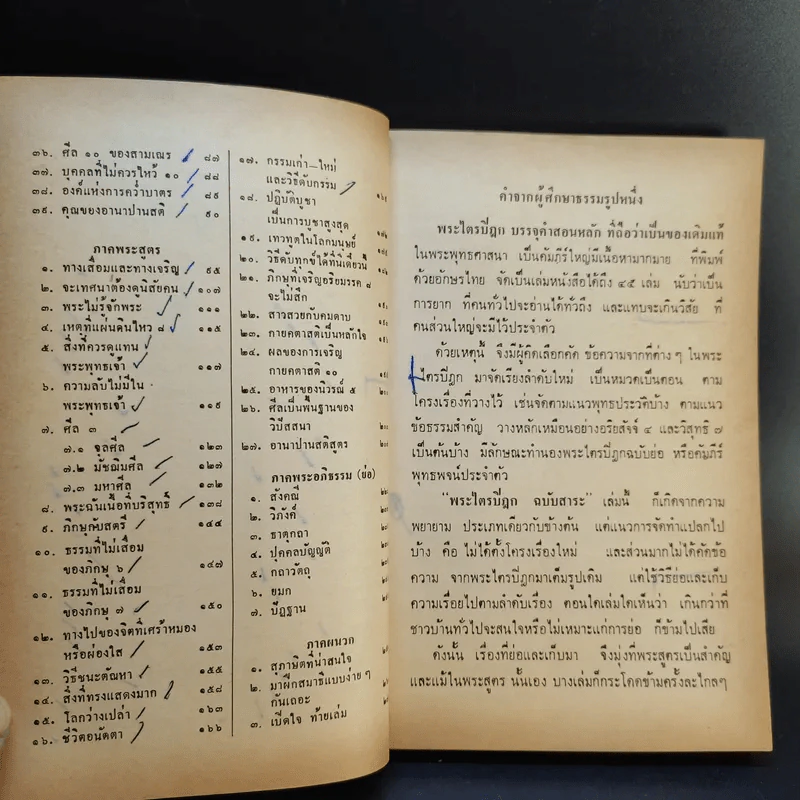 ๓๖. ศีล ๑๐ ของสามเณร ๘๗
๓๗. บุคคลที่ไม่ควรไหว้ ๑๐ ๘๘
๓๘. องค์แห่งการคว่ำบาตร ๘๙
๓๙. คุณของอานาปานสติ ๙๐
ภาคพระสูตร
๑. ทางเสื่อมและทางเจริญ ๙๕
๒. จะเทศน์ต้องดูนิสัยคน ๑๐๗
๓. พระไม่รู้จักพระ ๑๑๑
๔. เหตุที่แผ่นดินไหว ๘ ๑๑๕
๕. สิ่งที่ควรดูแทน
พระพุทธเจ้า ๑๑๗
๖. ความลับไม่มีใน
พระพุทธเจ้า ๑๑๙
๗. ศีล ๓
๗.๑ จุลศีล ๑๒๓
๗.๒ มัชฌิมศีล ๑๒๗
๗.๓ มหาศีล ๑๓๒
๘. พระฉันเนื้อที่บริสุทธิ์ ๑๓๘
๙. ภิกษุกับสตรี ๑๔๔
๑๐. ธรรมที่ไม่เสื่อม
ของภิกษุ ๖ ๑๔๗
๑๑. ธรรมที่ไม่เสื่อม
ของภิกษุ ๗ ๑๕๐
๑๒. ทางไปของจิตที่เศร้าหมอง
หรือผ่องใส ๑๕๓
๑๓. วิธีชนะตัณหา ๑๕๕
๑๔. สิ่งที่ทรงแสดงมาก ๑๕๘
๑๕. โลกว่างเปล่า ๑๖๓
๑๖. ชีวิตอนัตตา ๑๖๖
๑๗. กรรมเก่า—ใหม่
และวิธีดับกรรม
๑๘. ปฏิบัติบูชา
เป็นการบูชาสูงสุด
๑๙. เทวทูตในโลกมนุษย์
๒๐. วิธีดับทุกข์ได้ที่นี่เดี๋ยวนี้
๒๑. ภิกษุที่เจริญอริยมรรค ๘
จะไม่สึก
๒๒. สาวสวยกับคมดาบ
๒๓. กายคตาสติเป็นหลักใจ
๒๔. ผลของการเจริญ
กายคตาสติ ๑๐
๒๕. อาหารของนิวรณ์ ๕
๒๖. ศีลเป็นพื้นฐานของ
วิปัสสนา
๒๗. อานาปานสติสูตร
ภาคพระอภิธรรม (ย่อ)
๑. สังคณี
๒. วิภังค์
๓. ธาตุกถา
๔. ปุคคลบัญญัติ
๕. กถาวัตถุ
๖. ยมก
๗. ปัฏฐาน
ภาคผนวก
๑. สุภาษิตที่น่าสนใจ
๒. มาฝึกสมาธิแบบง่าย ๆ
กันเถอะ
๓. เปิดใจ ท้ายเล่ม
คำจากผู้ศึกษาธรรมรูปหนึ่ง
พระไตรปิฎก บรรจุคำสอนหลัก ที่ถือว่าเป็นของเดิมแท้
ในพระพุทธศาสนา เป็นคัมภีร์ใหญ่มีเนื้อหามากมาย ที่พิมพ์
ด้วยอักษรไทย จัดเป็นเล่มหนังสือได้ถึง ๔๕ เล่ม นับว่าเป็น
การยาก ที่คนทั่วไปจะอ่านได้ทั่วถึง และแทบจะเกินวิสัย ที่
คนส่วนใหญ่จะมีไว้ประจำตัว
ด้วยเหตุนี้ จึงมีผู้คิดเลือกคัด ข้อความจากที่ต่าง ๆ ในพระ
ไตรปิฎก มาจัดเรียงลำดับใหม่ เป็นหมวดเป็นตอน ตาม
โครงเรื่องที่วางไว้ เช่นจัดตามแนวพุทธประวัติบ้าง ตามแนว
ข้อธรรมสำคัญ วางหลักเหมือนอย่างอริยสัจจ์ ๔ และวิสุทธิ ๗
เป็นต้นบ้าง มีลักษณะทำนองพระไตรปิฎกฉบับย่อ หรือคัมภีร์
พุทธพจน์ประจำตัว
"พระไตรปิฎก ฉบับสาระ" เล่มนี้ ก็เกิดจากความ
พยายาม ประเภทเดียวกับข้างต้น แต่แนวการจัดทำแปลกไป
บ้าง คือ ไม่ได้ตั้งโครงเรื่องใหม่ และส่วนมากไม่ได้คัดข้อ
ความ จากพระไตรปิฎกมาเต็มรูปเดิม แต่ใช้วิธีย่อและเก็บ
ความเรื่อยไปตามลำดับเรื่อง ตอนใดเล่มใดเห็นว่า เกินกว่าที่
ชาวบ้านทั่วไปจะสนใจหรือไม่เหมาะแก่การย่อ ก็ข้ามไปเสีย
ดังนั้น เรื่องที่ย่อและเก็บมา จึงมุ่งที่พระสูตรเป็นสำคัญ
และแม้ในพระสูตร นั้นเอง บางเล่มก็กระโดดข้ามครั้งละไกลๆ